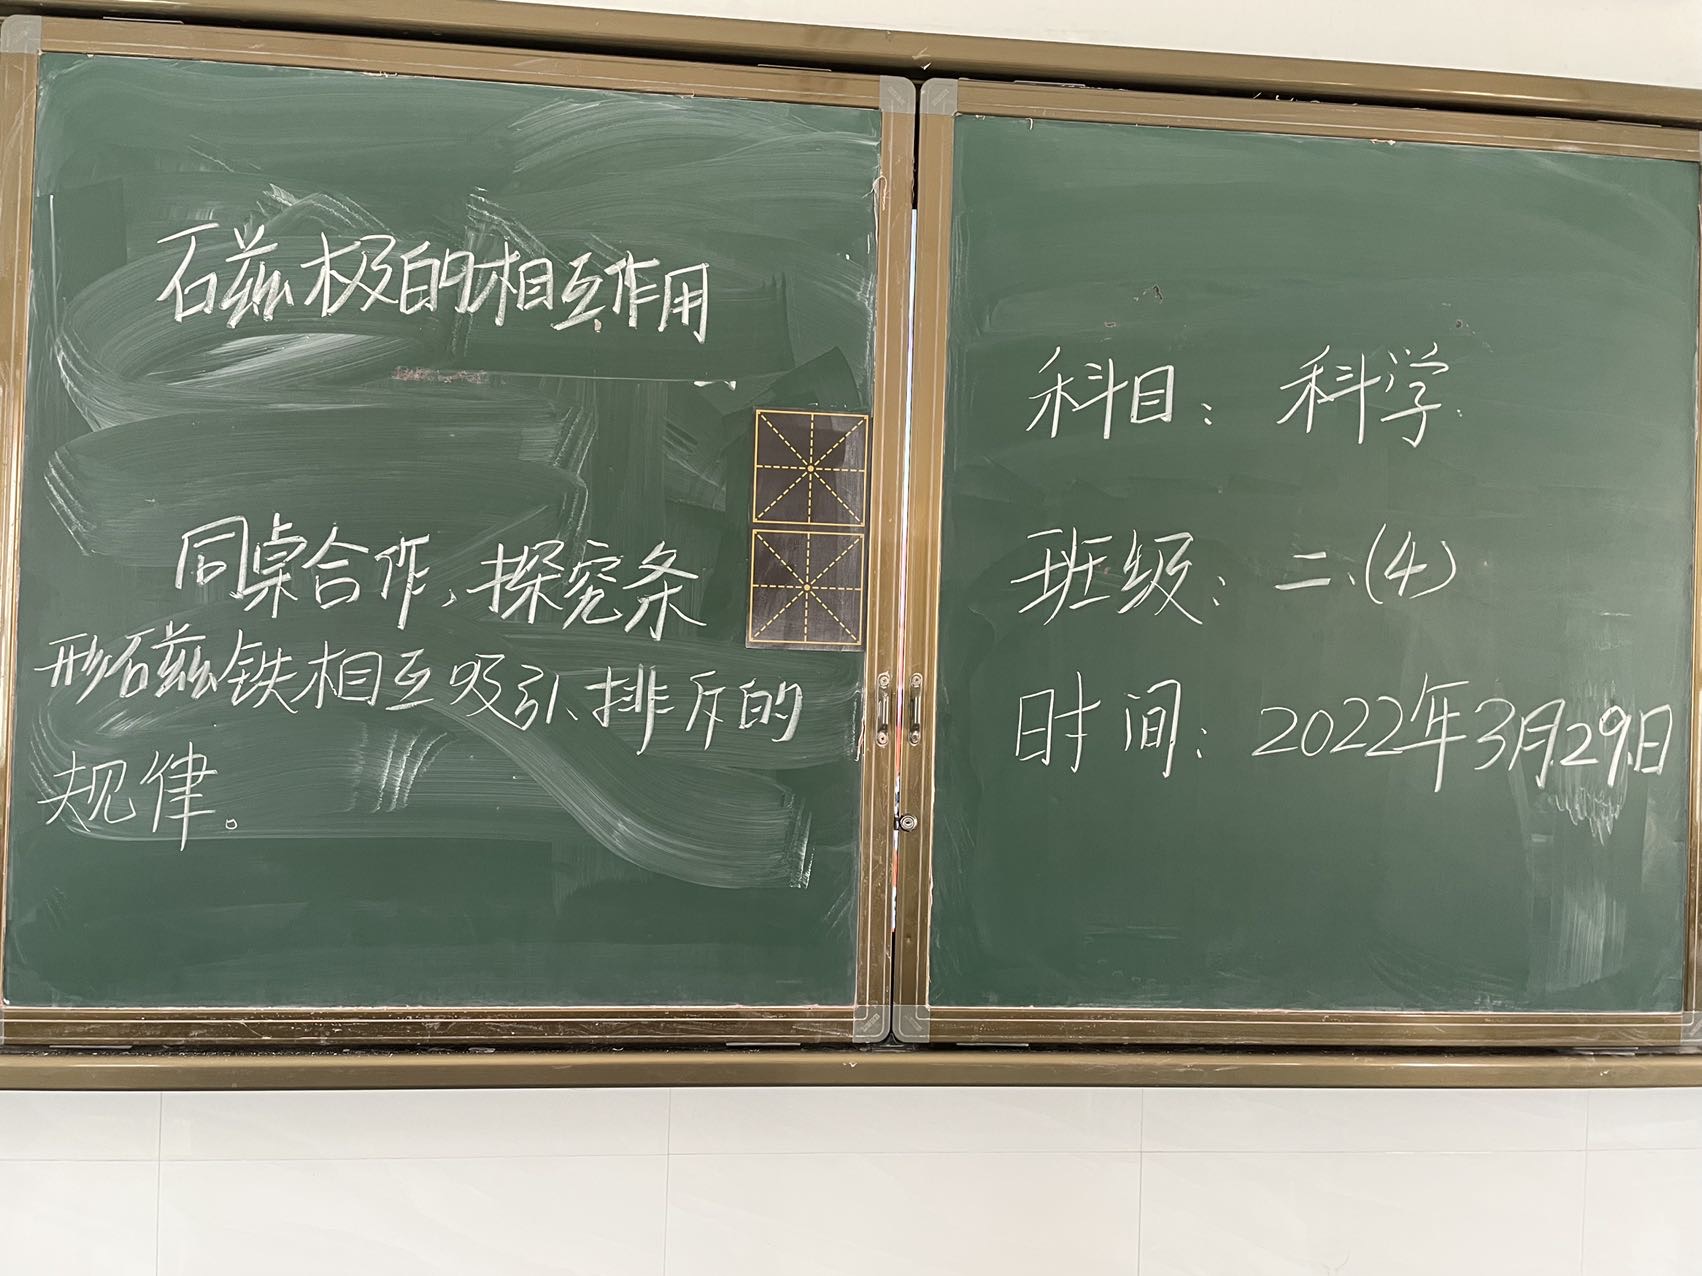 磁极的相互作用
同桌合作,探究条
形磁铁相互吸引、排斥的
规律。
科目：科学
班级：二、(4)
时间：2022年3月29日